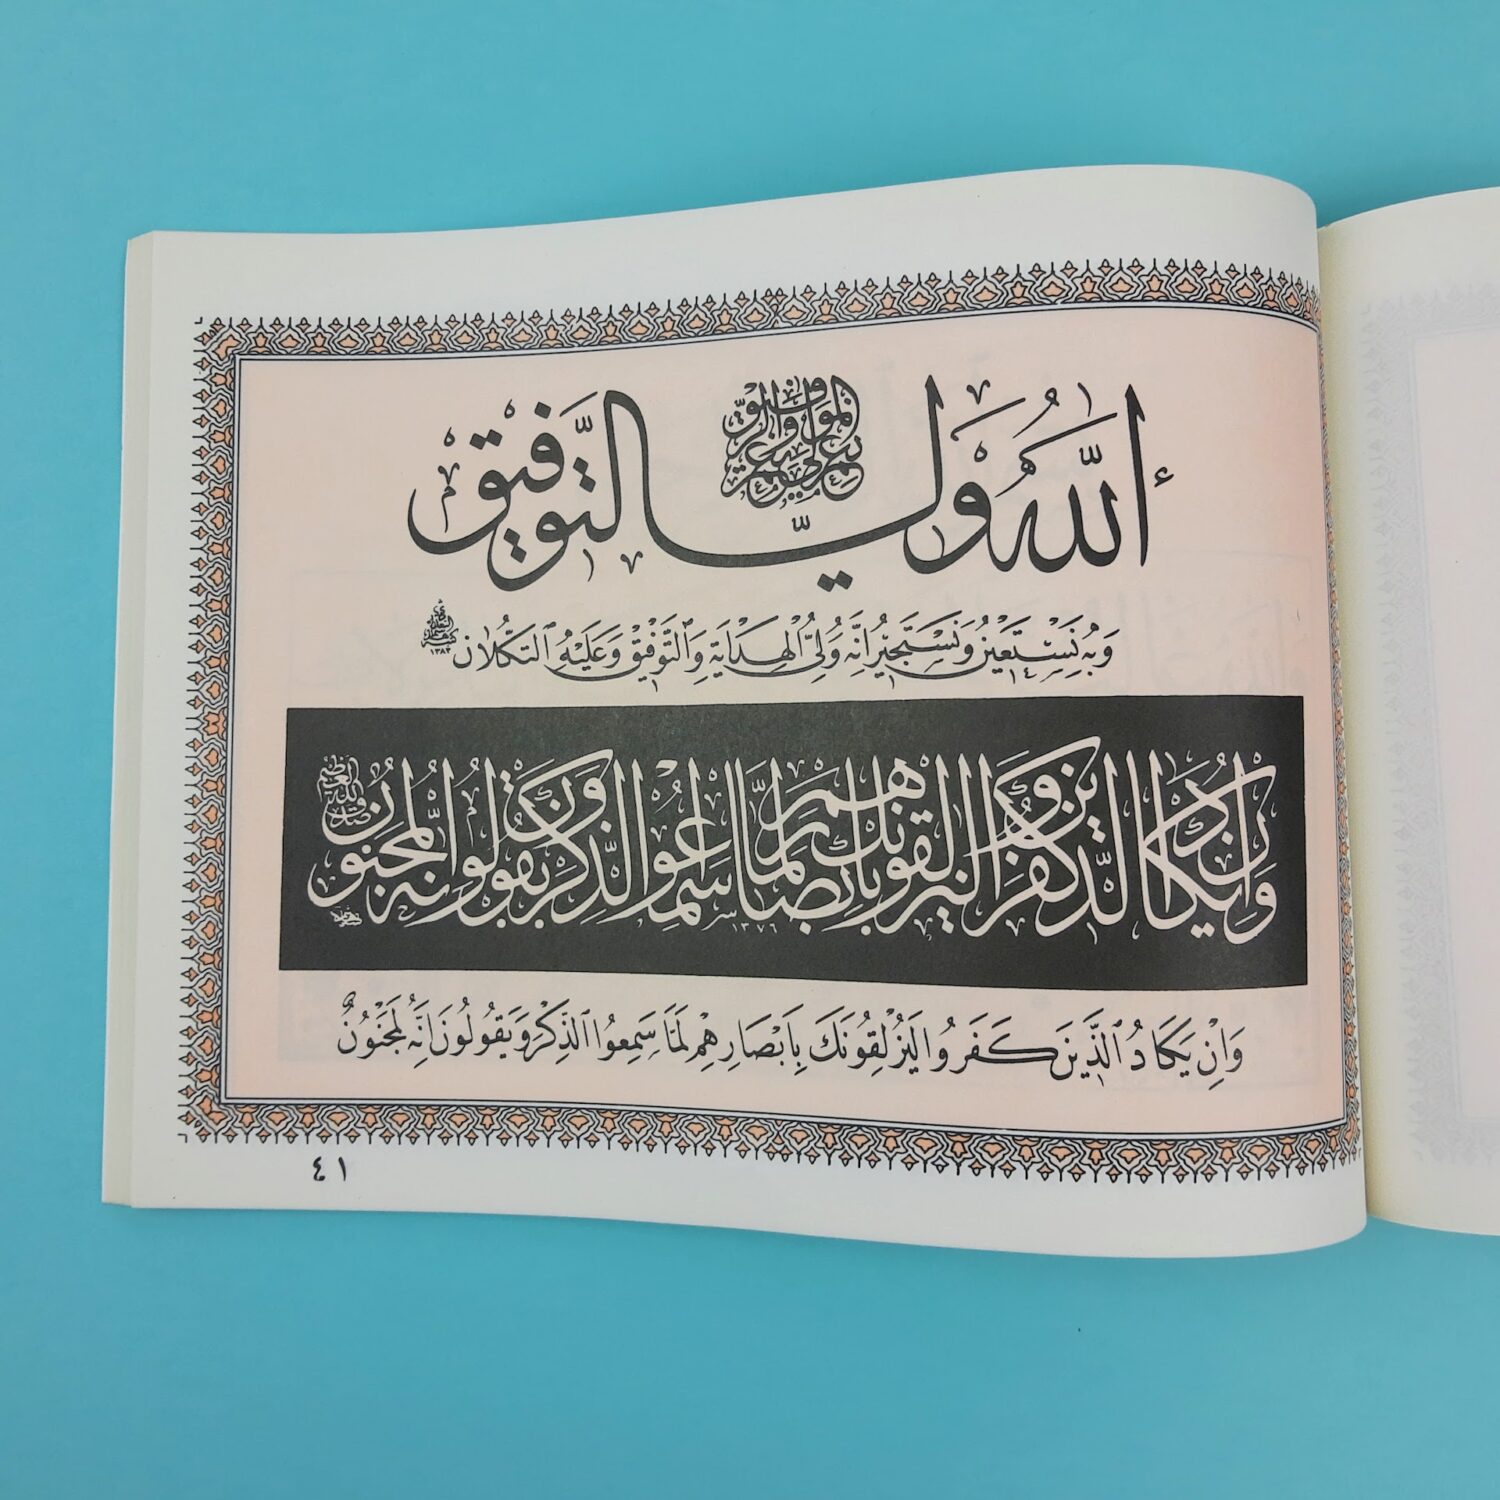 اَللّٰهُ وَلِيُّ التَّوْفِيقِ
وَبِهِ نَسْتَعِينُ وَنَسْتَجِيرُ اِنَّهُ وَلِيُّ الْهِدَايَةِ وَالتَّوْفِيْقِ وَعَلَيْهِ التَّكْلَان
١٣٨٣
وَاِنْ يَكَادُ الَّذِينَ كَفَرُوا لَيُزْلِقُونَكَ بِاَبْصَارِهِمْ لَمَّا سَمِعُوا الذِّكْرَ وَيَقُولُونَ اِنَّهُ لَمَجْنُونٌ
صدق الله العظيم
١٣٧٦
وَاِنْ يَكَادُ الَّذِينَ كَفَرُوا لَيُزْلِقُونَكَ بِاَبْصَارِهِمْ لَمَّا سَمِعُوا الذِّكْرَ وَيَقُولُونَ اِنَّهُ لَمَجْنُونٌ
٤١